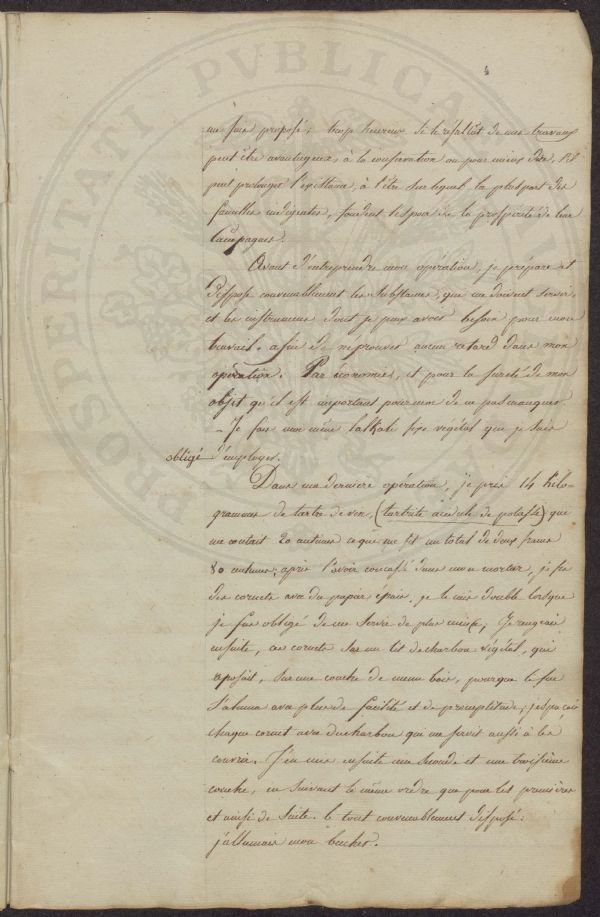 PROSPERITATI PVBLICAE
me suis proposé, trop heureux si le résultat de mes travaux
peut être avantageux, à la conservation ou pour mieux dire, s'il
peut prolonger l'existance, à l'être sur lequel la pluspart des
familles indigentes, fondent l'espoir de la prosperité de leur
Campagnes.
Avant d'entreprendre mon opération, je prépare et
disspose convenablement les substances, qui me doivent servir,
et les instrumens dont je peux avoir besoin pour mon
travail. afin de n'eprouver aucun retard dans mon
opération. Par economie, et pour la sureté de mon
objet qu'il est important pour moi de ne pas manquer
- Je fais moi même l'alkali fixe végétal que je suis
obligé d'employer.
Dans ma derniere opération, je pris 14 Kilo-
grammes de tartre de vin, (tartrite acidule de potasse) que
me coutait 20 centimes ce que me fit un total de deux francs
80 centimes; après l'avoir concassé dans mon mortier, je fis
des cornets avec du papier épais, je le mis double lorsque
je fus obligé de me servir de plus mince; Je rangeais
ensuite, ces cornets sur un lit de charbon végétal, qui
reposait, sur une couche de menu bois, pour que le feu
s'aluma avec plus de facilité et de promptitude; j'espaçais
chaque cornet avec du charbon qui me servit aussi à les
couvrir. J'en mis ensuite une seconde et une troisième
couche, en suivant le même ordre que pour les premières
et ainsi de suite. le tout convenablement disposé:
j'allumais mon bucher.